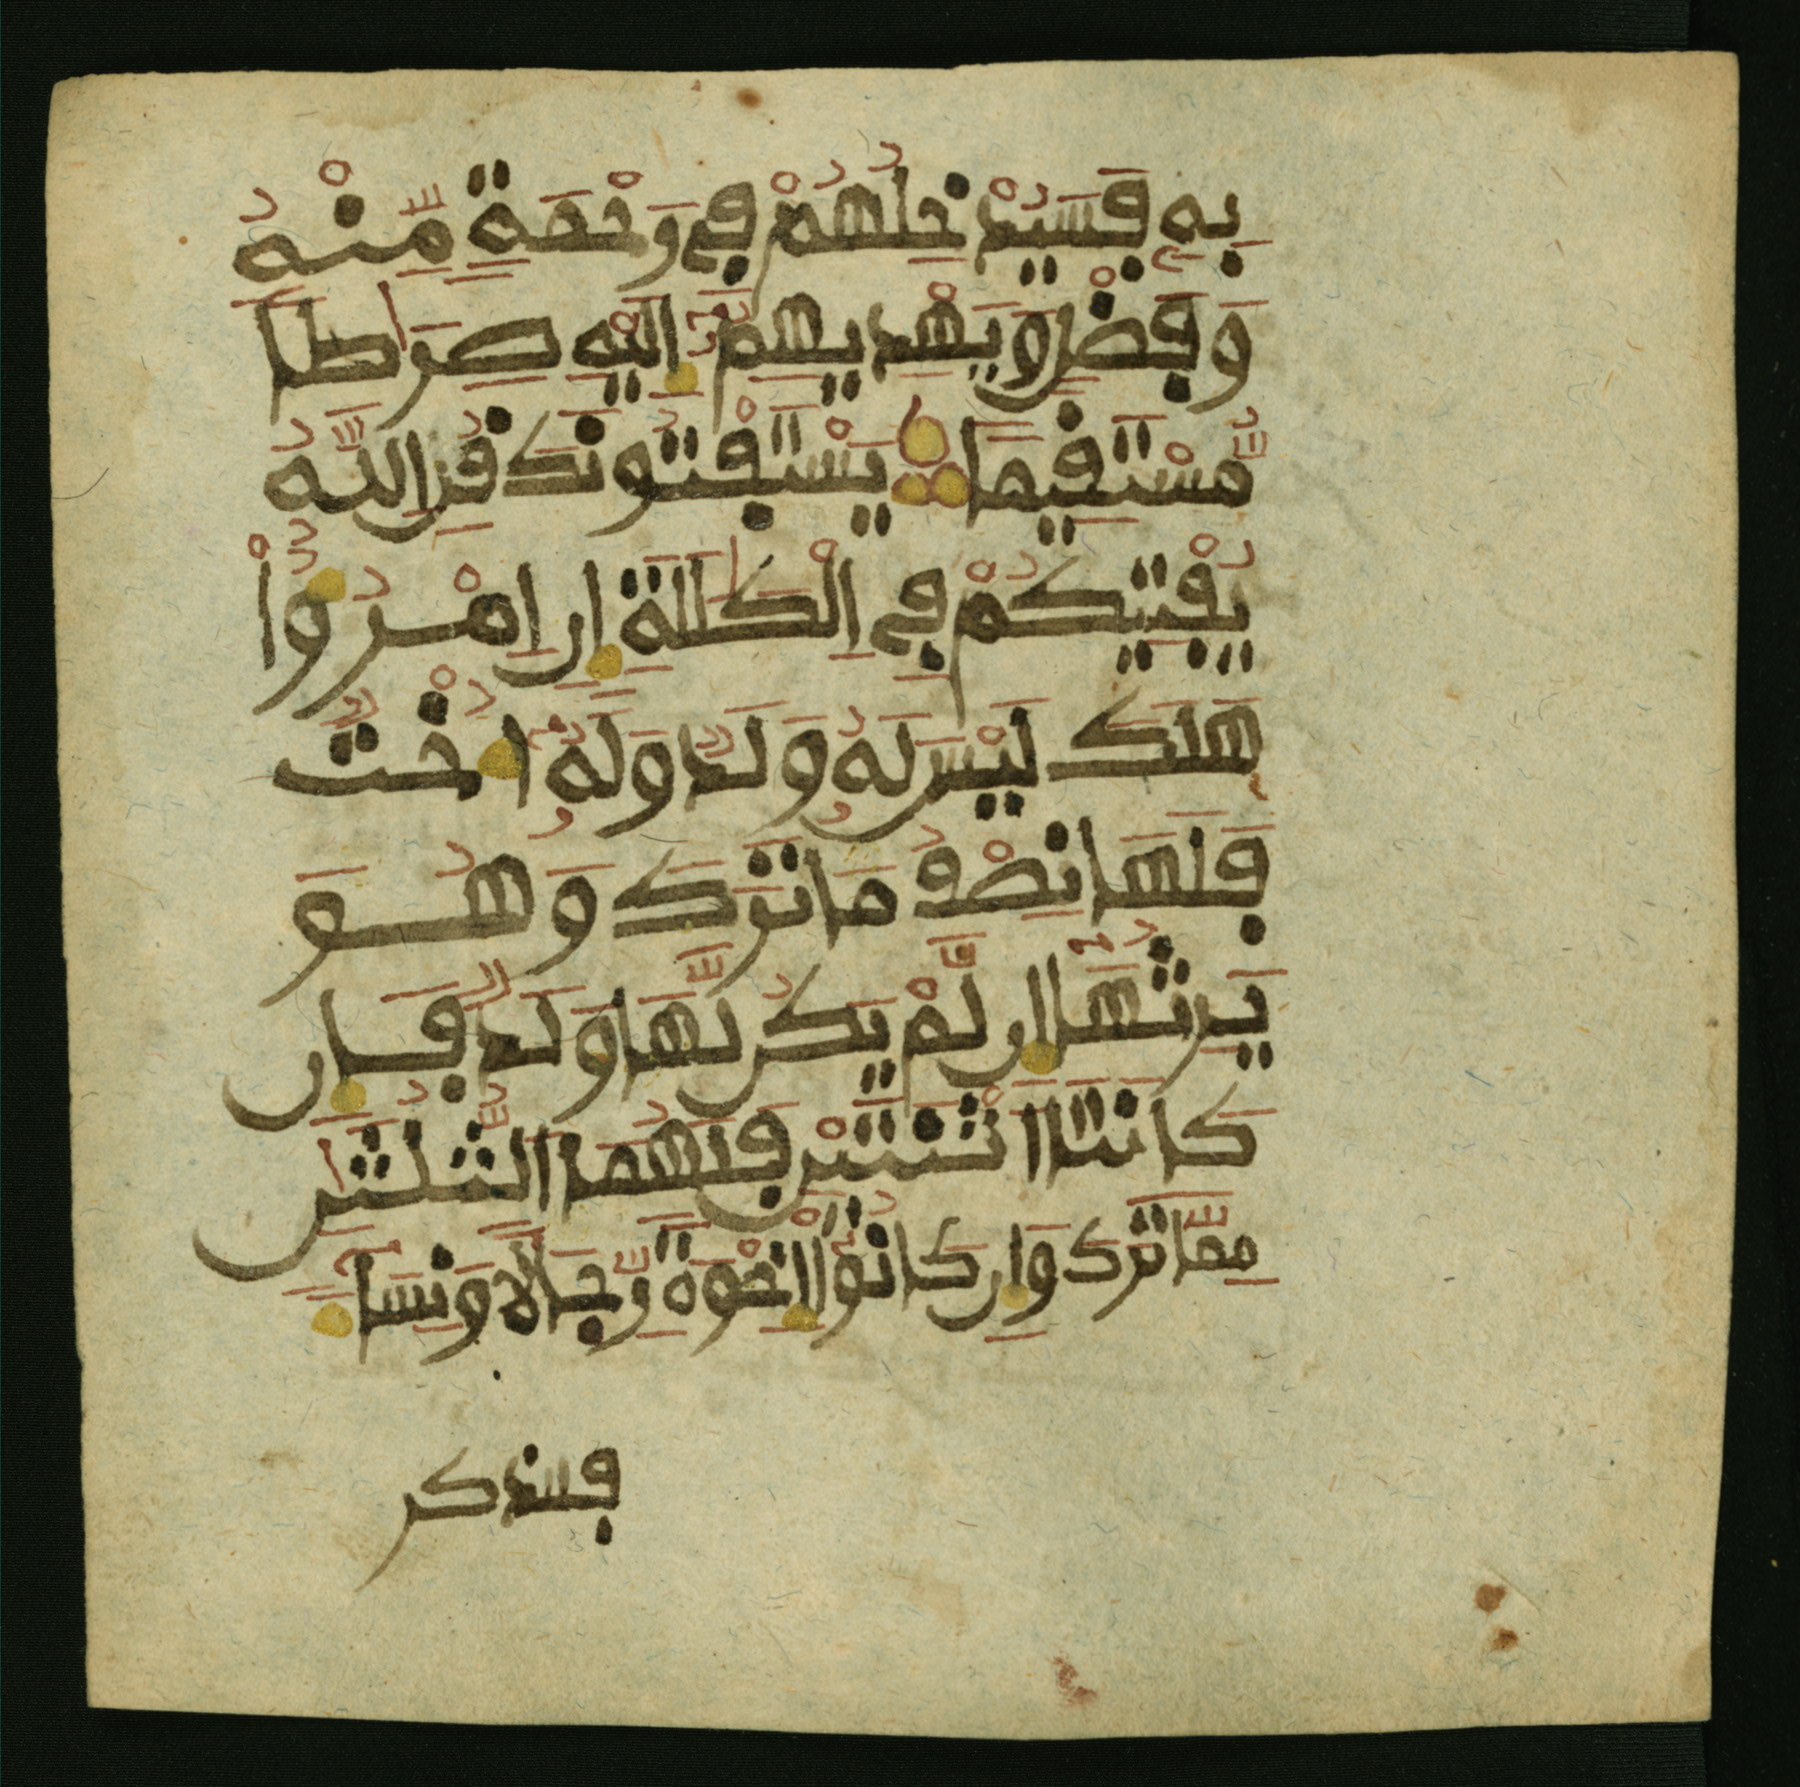 بِهِۦ فَسَيُدْخِلُهُمْ فِي رَحْمَةٍ مِّنْهُ
وَفَضْلٍ وَيَهْدِيهِمُۥ إِلَيْهِ صِرَٰطا
مُّسْتَقِيمًا يَسْتَفْتُونَكَ قُلِ اللَّهُ
يُفْتِيكُمْ فِي اِلْكَلَٰلَةِ إِنِ اِمْرُؤٌاْ
هَلَكَ لَيْسَ لَهُۥ وَلَدٌ وَلَهُۥ أُخْتٌ
فَلَهَا نِصْفُ مَا تَرَكَ وَهُوَ
يَرِثُهَا إِن لَّمْ يَكُن لَّهَا وَلَدٌ فَإِن
كَانَتَا اَثْنَتَيْنِ فَلَهُمَا الثُّلُثَٰنِ
مِمَّا تَرَكَ وَإِن كَانُوٓاْ إِخْوَةً رِّجَالًا وَنِسَآءً
فللذكر